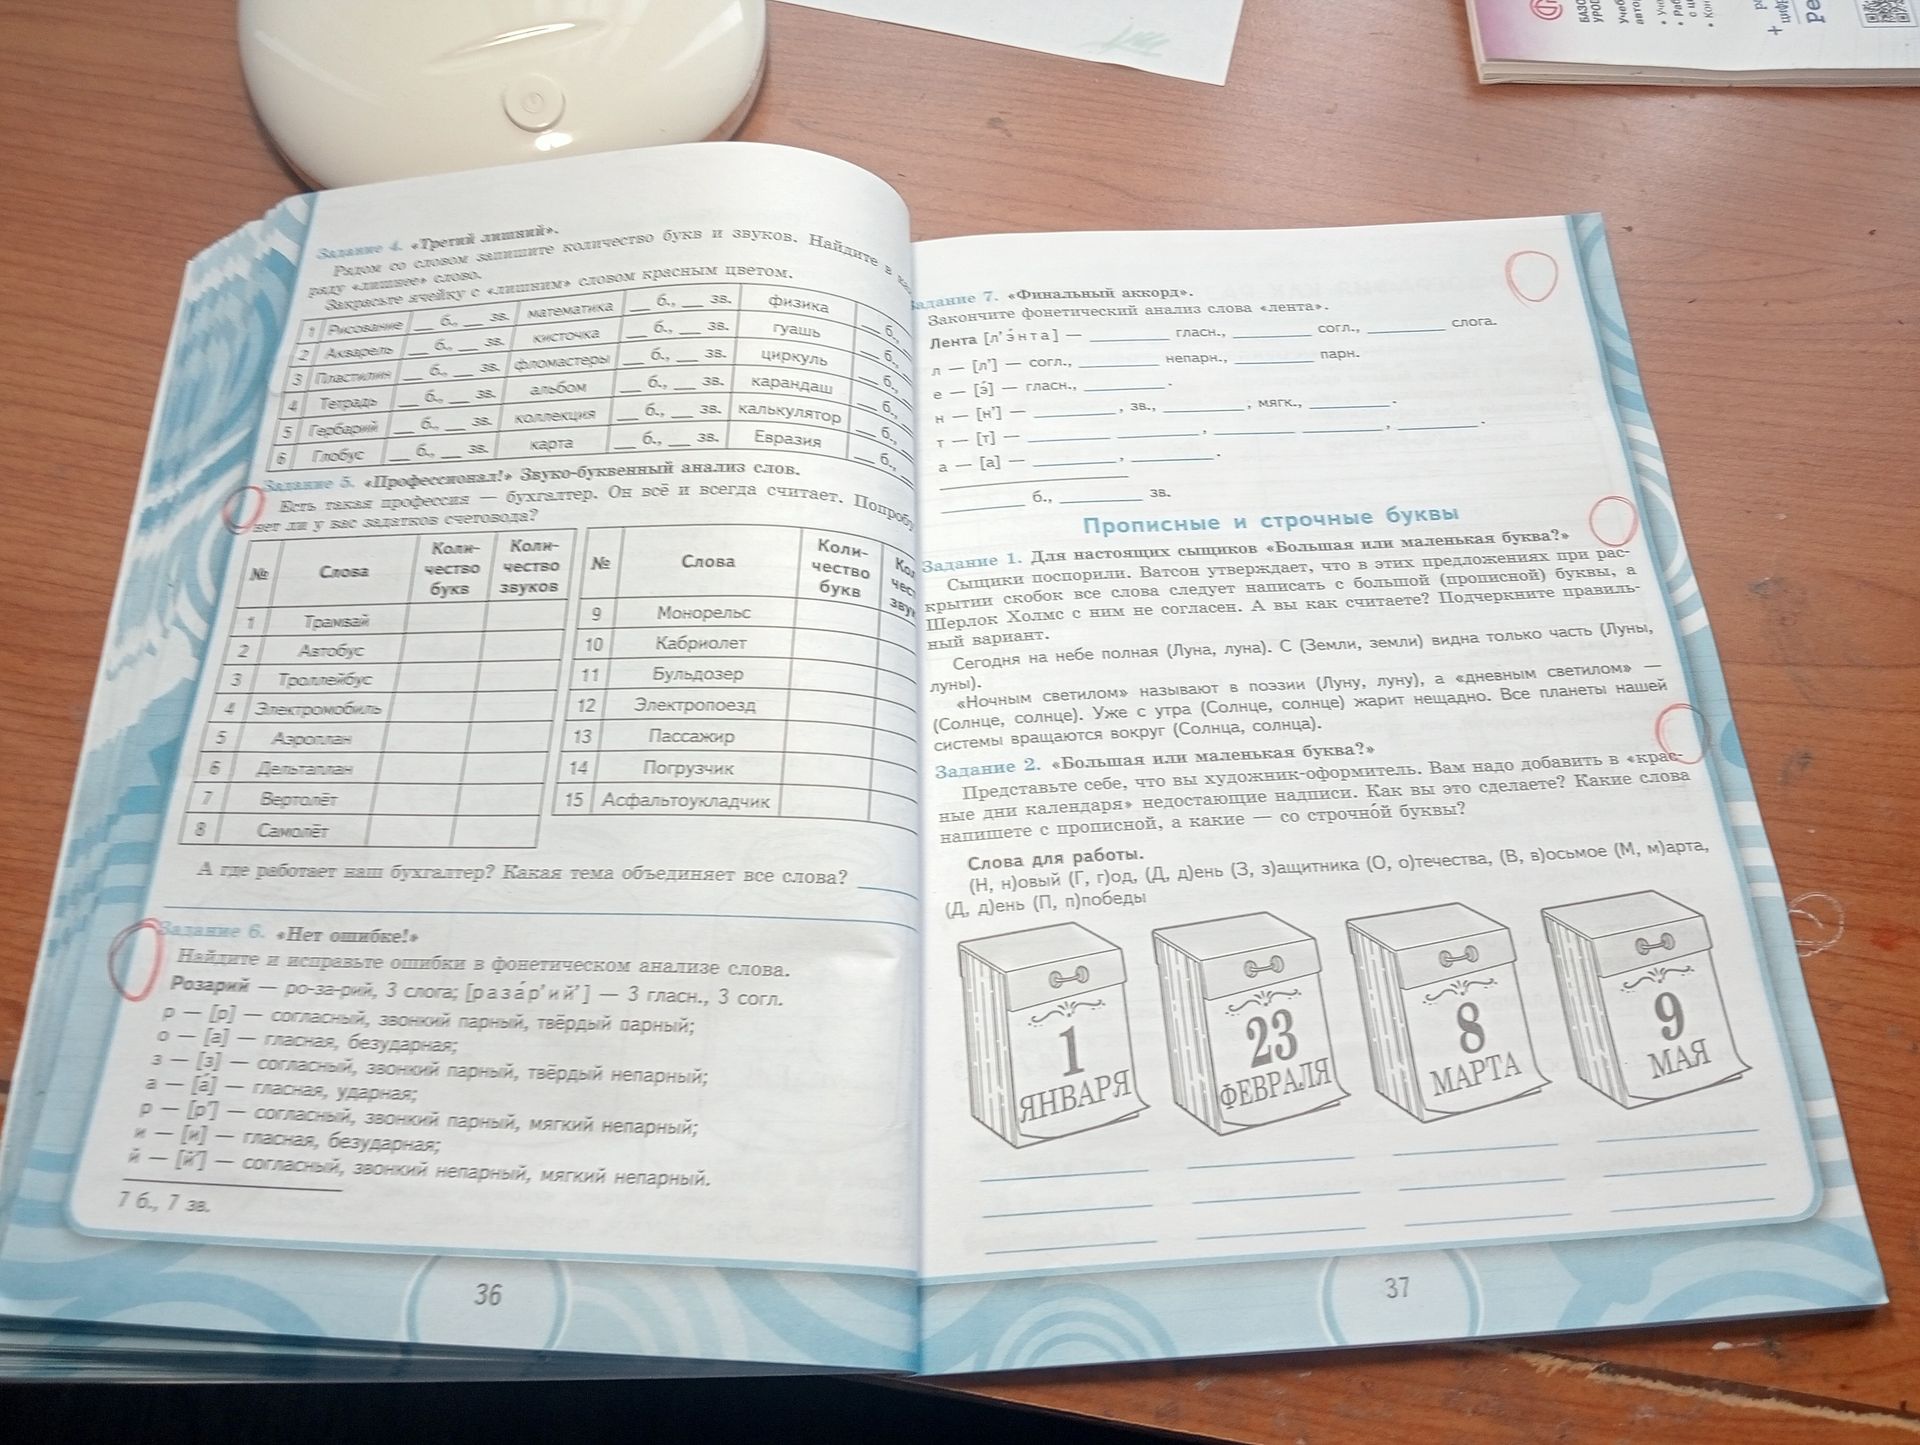 Задание 4. «Третий лишний».
Рядом со словом запишите количество букв и звуков. Найдите в
ряду «лишнее» слово.
Закрасьте ячейку с «лишним» словом красным цветом.
1 Рисование __ б., __ зв. математика __ б., __ зв. физика __ б.,
2 Акварель __ б., __ зв. кисточка __ б., __ зв. гуашь __ б.,
3 Пластилин __ б., __ зв. фломастеры __ б., __ зв. циркуль __ б.,
4 Тетрадь __ б., __ зв. альбом __ б., __ зв. карандаш __ б.,
5 Гербарий __ б., __ зв. коллекция __ б., __ зв. калькулятор __ б.,
6 Глобус __ б., __ зв. карта __ б., __ зв. Евразия __ б.,
Задание 5. «Профессионал!» Звуко-буквенный анализ слов.
Есть такая профессия — бухгалтер. Он всё и всегда считает.
нет ли у вас задатков счетовода?
№ Слова Коли-чество букв Коли-чество звуков
1 Трамвай
2 Автобус
3 Троллейбус
4 Электромобиль
5 Аэроплан
6 Дельтаплан
7 Вертолёт
8 Самолёт
№ Слова Коли-чество букв
9 Монорельс
10 Кабриолет
11 Бульдозер
12 Электропоезд
13 Пассажир
14 Погрузчик
15 Асфальтоукладчик
А где работает наш бухгалтер? Какая тема объединяет все слова?
Задание 6. «Нет ошибке!»
Найдите и исправьте ошибки в фонетическом анализе слова.
Розарий — ро-за-рий, 3 слога; [разáр'ий'] — 3 гласн., 3 согл.
р — [р] — согласный, звонкий парный, твёрдый парный;
о — [а] — гласная, безударная;
з — [з] — согласный, звонкий парный, твёрдый непарный;
а — [á] — гласная, ударная;
р — [р'] — согласный, звонкий парный, мягкий непарный;
и — [и] — гласная, безударная;
й — [й'] — согласный, звонкий непарный, мягкий непарный.
7 б., 7 зв.
36
Задание 7. «Финальный аккорд».
Закончите фонетический анализ слова «лента».
Лента [л'э́нта] — ______ гласн., ______ согл., ______ слога.
л — [л'] — согл., ______ непарн., ______ парн.
е — [э́] — гласн., ______.
н — [н'] — ______, зв., ______, мягк., ______.
т — [т] — ______ ______, ______ ______, ______.
а — [а] — ______, ______.
______ б., ______ зв.
Прописные и строчные буквы
Задание 1. Для настоящих сыщиков «Большая или маленькая буква?»
Сыщики поспорили. Ватсон утверждает, что в этих предложениях при рас-
крытии скобок все слова следует написать с большой (прописной) буквы, а
Шерлок Холмс с ним не согласен. А вы как считаете? Подчеркните правиль-
ный вариант.
Сегодня на небе полная (Луна, луна). С (Земли, земли) видна только часть (Луны,
луны).
«Ночным светилом» называют в поэзии (Луну, луну), а «дневным светилом» —
(Солнце, солнце). Уже с утра (Солнце, солнце) жарит нещадно. Все планеты нашей
системы вращаются вокруг (Солнца, солнца).
Задание 2. «Большая или маленькая буква?»
Представьте себе, что вы художник-оформитель. Вам надо добавить в «крас-
ные дни календаря» недостающие надписи. Как вы это сделаете? Какие слова
напишете с прописной, а какие — со строчнóй буквы?
Слова для работы.
(Н, н)овый (Г, г)од, (Д, д)ень (З, з)ащитника (О, о)течества, (В, в)осьмое (М, м)арта,
(Д, д)ень (П, п)победы
1 ЯНВАРЯ
23 ФЕВРАЛЯ
8 МАРТА
9 МАЯ
37